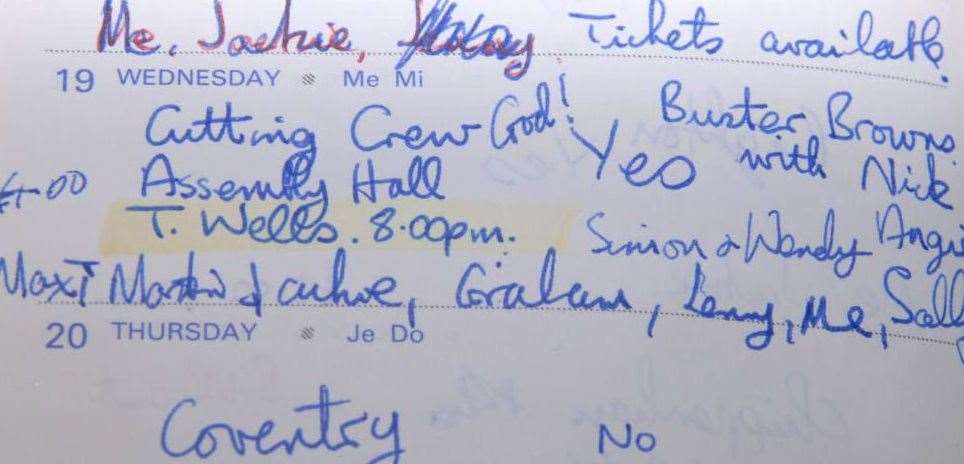 Me, Jackie, Tickets available.
19 WEDNESDAY Me Mi
Cutting Crew God! Buster Browns
£4.00 Assembly Hall Yes with Nick
T. Wells. 8.00pm. Simon & Wendy Angi
Max T Martin Jackie, Graham, Lenny, Me, Sall
20 THURSDAY Je Do
Coventry No